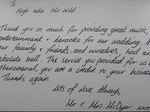 To Hugh alias Mr Wild
Thank you so much for providing great music,
entertainment + karaoke for our wedding. All
our family + friends and ourselves, had an
absolute ball. The service you provided for us was
phenomenal, you are a credit to your business.
Thanks again,
Lots of love always,
Mr + Mrs McDyer